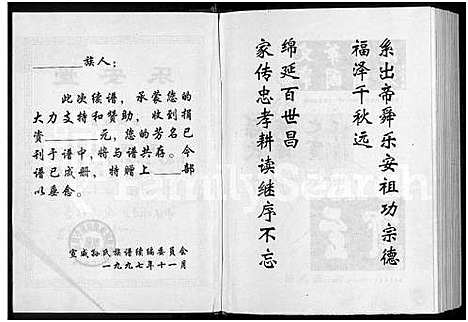 ______族人：
此次续谱，承蒙您的
大力支持和赞助，收到捐
资______元，您的芳名已
刊于谱中，将与谱共存。今
谱已成册，特赠上____部
以垂念。
宣威孙氏族谱续编委员会
一九九七年十一月
系出帝舜乐安祖功宗德
福泽千秋远
绵延百世昌
家传忠孝耕读继序不忘
FamilySearch